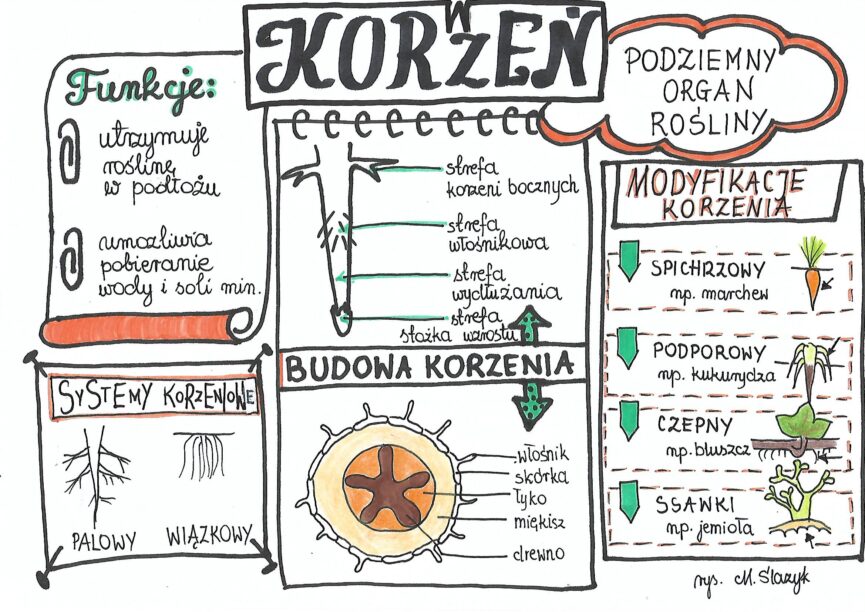 KORZEŃ
PODZIEMNY
ORGAN
ROŚLINY
Funkcje:
utrzymuje
roślinę
w podłożu
umożliwia
pobieranie
wody i soli min.
SYSTEMY KORZENIOWE
PALOWY
WIĄZKOWY
strefa
korzeni bocznych
strefa
włośnikowa
strefa
wydłużania
strefa
stożka wzrostu
BUDOWA KORZENIA
włośnik
skórka
łyko
miękisz
drewno
MODYFIKACJE
KORZENIA
SPICHRZOWY
np. marchew
PODPOROWY
np. kukurydza
CZEPNY
np. bluszcz
SSAWKI
np. jemioła
rys. M. Ślazyk